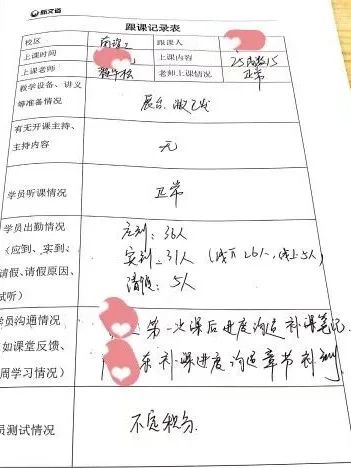 新文道
跟课记录表
校区 南校 跟课人
上课时间 上课内容 25内教15
上课老师 程午松 老师上课情况 正常
教学设备、讲义
等准备情况 展台、做已发
有无开课主持、
主持内容 无
学员听课情况 正常
学员出勤情况
(应到、实到、
请假、请假原因、
试听)
应到:36人
实到:31人(线下26人,线上5人)
请假:5人
学员沟通情况
如课堂反馈、
周学习情况)
第一次课后进度沟通 补课笔记
东 补课进度沟通章节补测
员测试情况 不定积分.